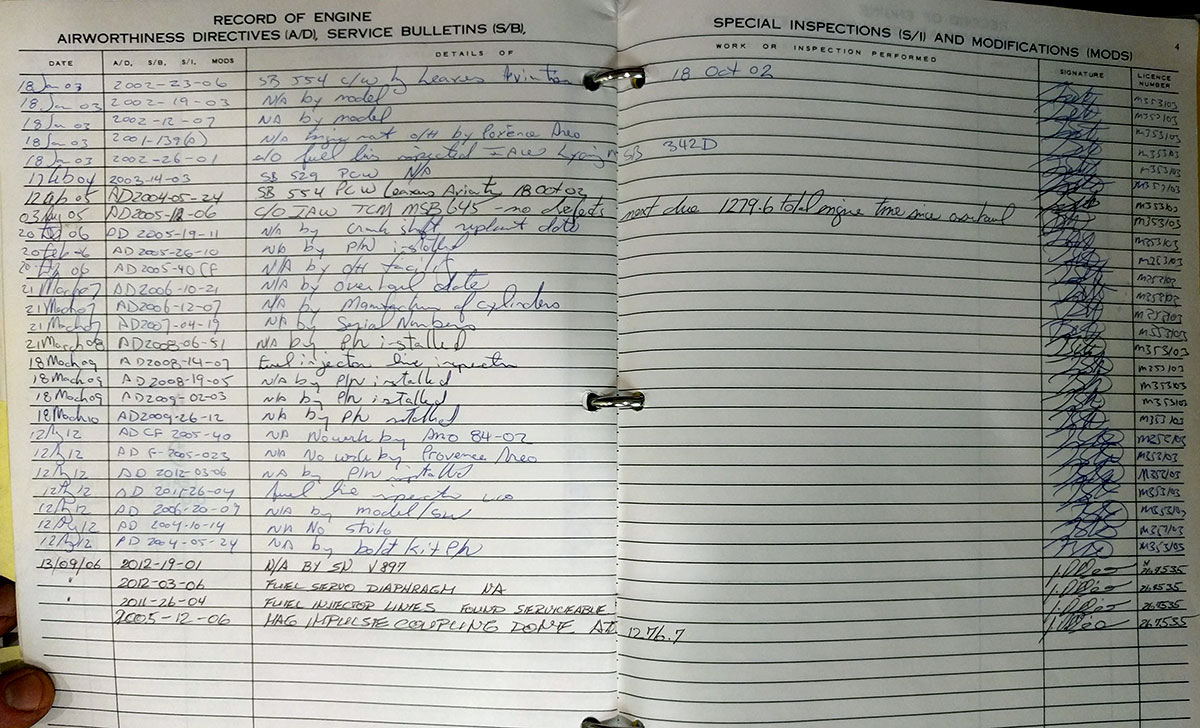 RECORD OF ENGINE
AIRWORTHINESS DIRECTIVES (A/D), SERVICE BULLETINS (S/B), SPECIAL INSPECTIONS (S/I) AND MODIFICATIONS (MODS)
4
DATE A/D, S/B, S/I, MODS DETAILS OF WORK OR INSPECTION PERFORMED SIGNATURE LICENCE NUMBER
18 Jan 03 2002-23-06 SB 554 c/w by Leavens Aviation 18 Oct 02 M353103
18 Jan 03 2002-19-03 N/A by model M353103
18 Jan 03 2002-12-07 NA by model M353103
18 Jan 03 N/A Engine not o/H by M353103
18 Jan 03 2002-26-01 c/o fuel line inspected IAW SB 342D M353103
17 Feb 04 2003-14-03 SB 529 PCW N/A M353103
AD2004-05-24 SB 554 PCW Leavens Aviation 18 Oct 02 M353103
05 AD2005-12-06 C/O IAW TCM MSB 645 - no defects next due 1279.6 total engine time since overhaul M353103
20 Feb 06 AD 2005-19-11 N/A by crank shaft date M353103
20 Feb 6 AD2005-26-10 NA by P/N installed M353103
06 AD2005-40 CF N/A by O/H facility M353103
21 March 07 AD2006-10-21 N/A by overhaul date M353103
21 March 07 AD2006-12-07 N/A by Manufacture of cylinders M353103
21 March 07 AD2007-04-19 NA by Serial Numbers M353103
21 March 08 AD2008-06-51 NA by P/N installed M353103
18 March 09 AD2008-14-07 Fuel injector line inspection M353103
18 March 09 AD2008-19-05 N/A by P/N installed M353103
18 March 09 AD2009-02-03 N/A by P/N installed M353103
18 March 10 AD2009-26-12 NA by P/N installed M353103
12 12 AD CF 2005-40 NA No work by Aero 84-02 M353103
12 12 AD F-2005-023 NA No work by Provence Aero M353103
12 12 AD 2012-03-06 NA by P/N installed M353103
12 12 AD 2011-26-04 fuel line M353103
12 12 AD 2006-20-09 N/A by model/SN M353103
12 12 AD 2004-10-14 NA No strike M353103
12 12 AD 2004-05-24 NA by bolt kit P/N M353103
13/09/06 2012-19-01 N/A BY SN V897 267535
" 2012-03-06 FUEL SERVO DIAPHRAGM NA 267535
" 2011-26-04 FUEL INJECTOR LINES FOUND SERVICEABLE 267535
2005-12-06 MAG IMPULSE COUPLING DONE AT 1276.7 267535